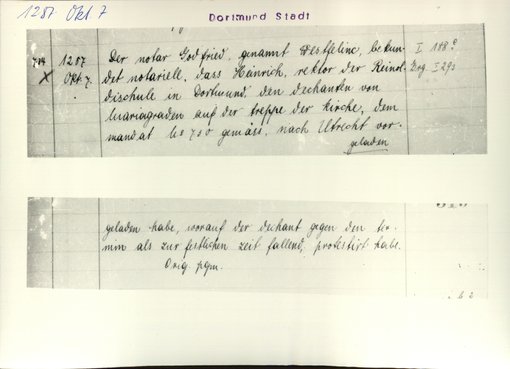 1287 Okt. 7
Dortmund Stadt
1287
Okt. 7.
Der notar Godfried, genannt Westfeline, bekun-
det notariell, dass Heinrich, rektor der Reinol-
dischule in Dortmund, den dechanten von
Mariagraden auf der treppe der kirche, dem
mandat No 730 gemäss, nach Utrecht vor-
geladen
I 188
Erg. I 293
geladen habe, worauf der dechant gegen den ter-
min als zur festlichen zeit fallend, protestirt habe.
Orig. pgm.